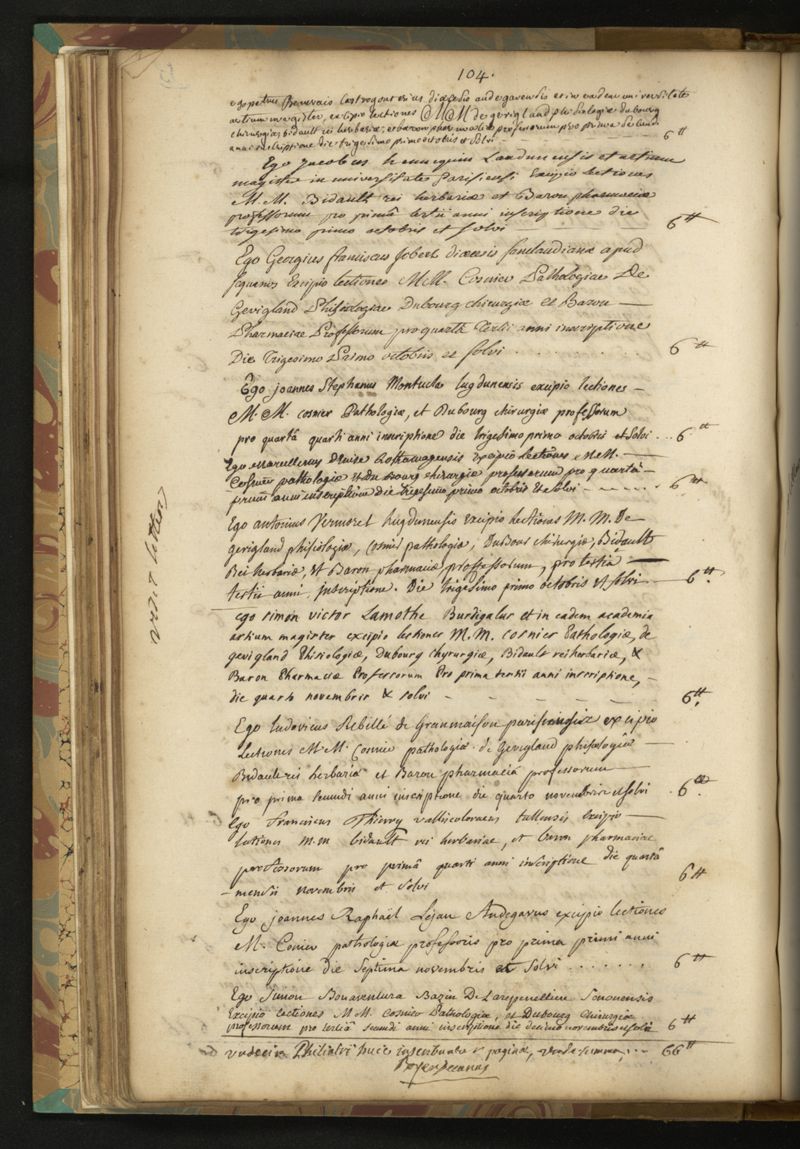 104.
ego petrus Beauvais Castrogonterius diœcesis andegavensis et in eadem universitate
artium magister, excipio lectiones MM de gevigland phisiologiæ dubourg
chirurgiæ, bidault rei herbariæ, et baron pharmaciæ professorum pro prima secundi
anni inscriptione die trigesimo primo octobris et solvi 6ᵗᵗ
Ego Jacobus hennequin Laudunensis et artium
magister in universitate parisiensi Excipio lectiones
M.M. Bidault rei herbariæ et Baron pharmaciæ
professorum pro primâ tertii anni inscriptione die
trigesimo primo octobris et solvi 6ᵗᵗ
Ego Georgius franciscus Jobert diœcesis sanclaudianæ apud
sequanos Excipio lectiones M.M. Cosnier Pathologiae De
Gevigland Phisiologiae Dubourg chirurgiæ et Baron
Pharmaciae Professorum pro quartâ Tertii anni inscriptione
Die Trigesimo Primo octobris et solvi . . . . . . 6ᵗᵗ
Ego joannes Stephanus Montucla lugdunensis excipio lectiones
M.M. cosnier Pathologiæ, et Dubourg chirurgiæ professorum
pro quartâ quarti anni inscriptione die trigesimo primo octobris et solvi . . . 6ᵗᵗ
Ego Marcellinus excipio lectiones M.M.
Cosnier pathologiæ et Du bourg chirurgiæ professorum pro quartâ
primi anni inscriptione die trigesimo primo octobris et solvi 6ᵗᵗ
Ego antonius Vermoret lugdunensis excipio lectiones M.M. De
gevigland phisiologiæ, Cosnier pathologiæ, Dubourg chirurgiæ, Bidault
Rei herbariæ, et Baron pharmaciæ professorum, pro tertiâ
tertii anni inscriptione. Die trigesimo primo octobris et solvi 6ᵗᵗ.
ego simon victor Lamothe Burdigalus et in eadem academia
artium magister excipio lectiones M.M. cosnier Pathologiæ, de
gevigland Phisiologiæ, Dubourg chyrurgiæ, Bidault rei herbariæ, &
Baron Pharmaciæ Professorum Pro prima tertii anni inscriptione,
die quarto novembris & solvi 6ᵗᵗ.
Ego ludovicus Rebillé de Granmaison parisinus excipio
Lectiones M.M. Cosnier pathologiæ de Gevigland phisiologiæ
Bidault rei herbariæ et Baron pharmaciæ professorum
pro prima secundi anni inscriptione die quarto novembris et solvi . 6ᵗᵗ.
Ego Franciscus Thierry vallicoloræus tullensis excipio
lectiones m.m bidault rei herbariae, et baron pharmaciae
professorum pro primâ quarti anni inscriptione die quartâ
mensis novembris et solvi 6ᵗᵗ
Ego joannes Raphaël Lejau Andegavus excipio lectiones
M. Conier pathologiæ professoris pro prima primi anni
inscriptione die Septima novembris et solvi . . . . . . 6ᵗᵗ
Ego Simon Bonaventura Bazin Senonensis
Excipio Lectiones M.M. Cosnier Pathologiæ, et Dubourg chirurgiæ
professorum pro tertiâ secundi anni inscriptione die decimo novembris et solvi 6ᵗᵗ
undecim Philiatri huic inscribuntur paginæ, unde summa, . . . 66ᵗᵗ
decanus